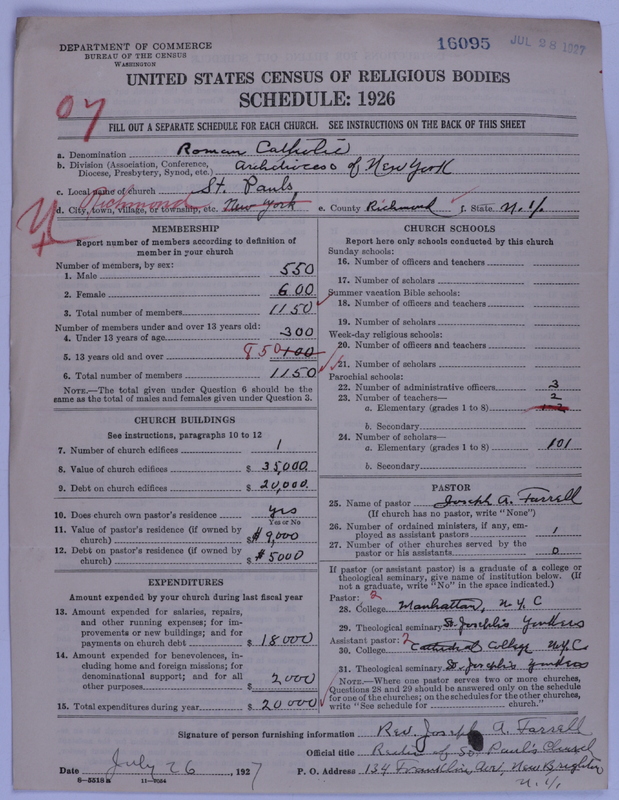 DEPARTMENT OF COMMERCE
BUREAU OF THE CENSUS
WASHINGTON
16095
JUL 28 1927
UNITED STATES CENSUS OF RELIGIOUS BODIES
SCHEDULE: 1926
07
FILL OUT A SEPARATE SCHEDULE FOR EACH CHURCH. SEE INSTRUCTIONS ON THE BACK OF THIS SHEET
a. Denomination Roman Catholic
b. Division (Association, Conference, Diocese, Presbytery, Synod, etc.) Archdiocese of New York
c. Local name of church St. Pauls
Richmond
d. City, town, village, or township, etc. New York e. County Richmond f. State N.Y.
MEMBERSHIP
Report number of members according to definition of
member in your church
Number of members, by sex:
1. Male 550
2. Female 600
3. Total number of members 1150
Number of members under and over 13 years old:
4. Under 13 years of age 300
5. 13 years old and over 850 100
6. Total number of members 1150
NOTE.—The total given under Question 6 should be
same as the total of males and females given under Question 3.
CHURCH BUILDINGS
See instructions, paragraphs 10 to 12
7. Number of church edifices 1
8. Value of church edifices $ 35,000
9. Debt on church edifices $ 20,000
10. Does church own pastor's residence yes
Yes or No
11. Value of pastor's residence (if owned by
church) $ $9,000
12. Debt on pastor's residence (if owned by
church) $ $5000
EXPENDITURES
Amount expended by your church during last fiscal year
13. Amount expended for salaries, repairs,
and other running expenses; for im-
provements or new buildings; and for
payments on church debt $ 18000
14. Amount expended for benevolences, in-
cluding home and foreign missions; for
denominational support; and for all
other purposes $ 2000
15. Total expenditures during year $ 20000
CHURCH SCHOOLS
Report here only schools conducted by this church
Sunday schools:
16. Number of officers and teachers
17. Number of scholars
Summer vacation Bible schools:
18. Number of officers and teachers
19. Number of scholars
Week-day religious schools:
20. Number of officers and teachers
21. Number of scholars
Parochial schools:
22. Number of administrative officers 3
23. Number of teachers— 2
a. Elementary (grades 1 to 8)
b. Secondary
24. Number of scholars—
a. Elementary (grades 1 to 8) 101
b. Secondary
PASTOR
25. Name of pastor Joseph A. Farrell
(If church has no pastor, write "None")
26. Number of ordained ministers, if any, em-
ployed as assistant pastors 1
27. Number of other churches served by the
pastor or his assistants 0
If pastor (or assistant pastor) is a graduate of a college or
theological seminary, give name of institution below. (If
not a graduate, write "No" in the space indicated.)
Pastor: 2
28. College Manhattan, N.Y.C
29. Theological seminary St. Joseph's Yonkers
Assistant pastor: 2
30. College Cathedral College N.Y.C
31. Theological seminary St. Joseph's Yonkers
NOTE.—Where one pastor serves two or more churches,
Questions 28 and 29 should be answered only on the schedule
for one of the churches; on the schedules for the other churches,
write "See schedule for church."
Signature of person furnishing information Rev. Joseph A. Farrell
Official title Rector of St. Paul's Church
Date July 26, 1927 P. O. Address 134 Franklin Ave, New Brighton
8—5518a 11—7034 N.Y.